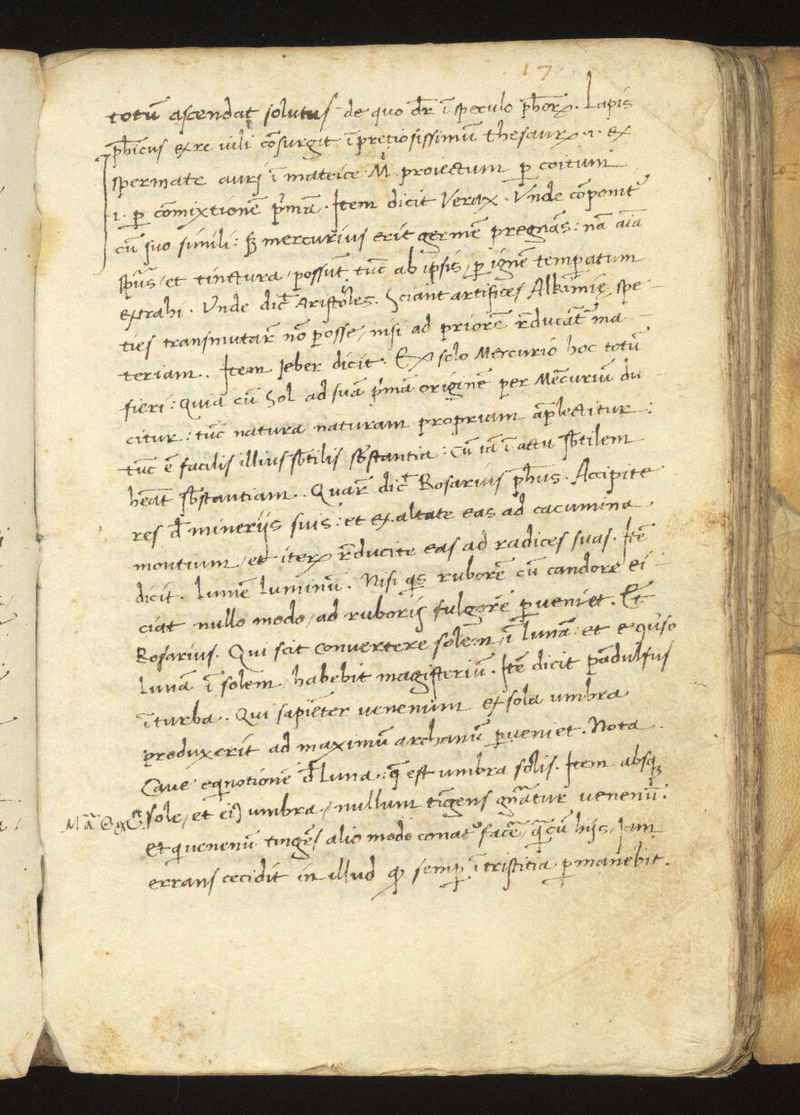 17
totū ascendat solutus de quo dr̄ ī speculo ph̄orꝝ. Lapis
ph̄icus ex re uili cōsurgit ī pretiosissimū thesaurꝝ .i. ex
spermate auri ī matrice M proiectum ꝑ coitum
.i. ꝑ cōmixtionē prīmā. Item dicit Verax. Vnde cōponit᷑
cū suo simili: sꝫ mercurius erit germē pregnās: nā aīa
spūs, et tinctura, possūt tūc ab ipsis, ꝑ ignē temperatum
extrahi. Vnde dic̄ Aristōles. Sciant artifices Alkimię, spe
ties transmutar̄ nō posse, nisi ad priorē rēducāt᷑ ma
teriam.. Item Jeber dicit. Ex solo Mercurio hoc totū
fieri: Quia cū Sol ad suā prīmā originē per Mēcuriū du
citur: tūc natura naturam propriam āplectitur:
tūc ē facilis illius sb̄tilis sb̄stantia: cū iā ī actu sb̄tilem
hēat sb̄stantiam.. Quar̄ dic̄ Rosarius ph̄us. Accipite
res d̄ mineriis suis: et exaltate eas ad cacumina
montium, et iterꝝ rēducite eas ad radices suas. Itē
dicit. Lumē luminū. Nisi qs ruborē cū candore ei
ciat nullo modo, ad ruboris fulgorē ꝑueniet. Et
Rosarius. Qui scit convertere solem, ī lunā: et
Lunā ī solem habebit magisteriū. Itē dicit pādulfus
ī turba.. Qui sapiēter uenenum ex sola umbra
produxerit ad maximū archanū ꝑueniet. Nota
Caue d̄ luna: q̄ est umbra solis. Item absqꝫ
sole, et eiꝰ umbra, nullum tīgens gn̄atur uenenū:
et qui uenenū tingēs, alio modo conat᷑ facē, q̄cū hijs, Jam
errans cecidit in illud qḋ semꝑ ī tristitia ꝑmanebit.